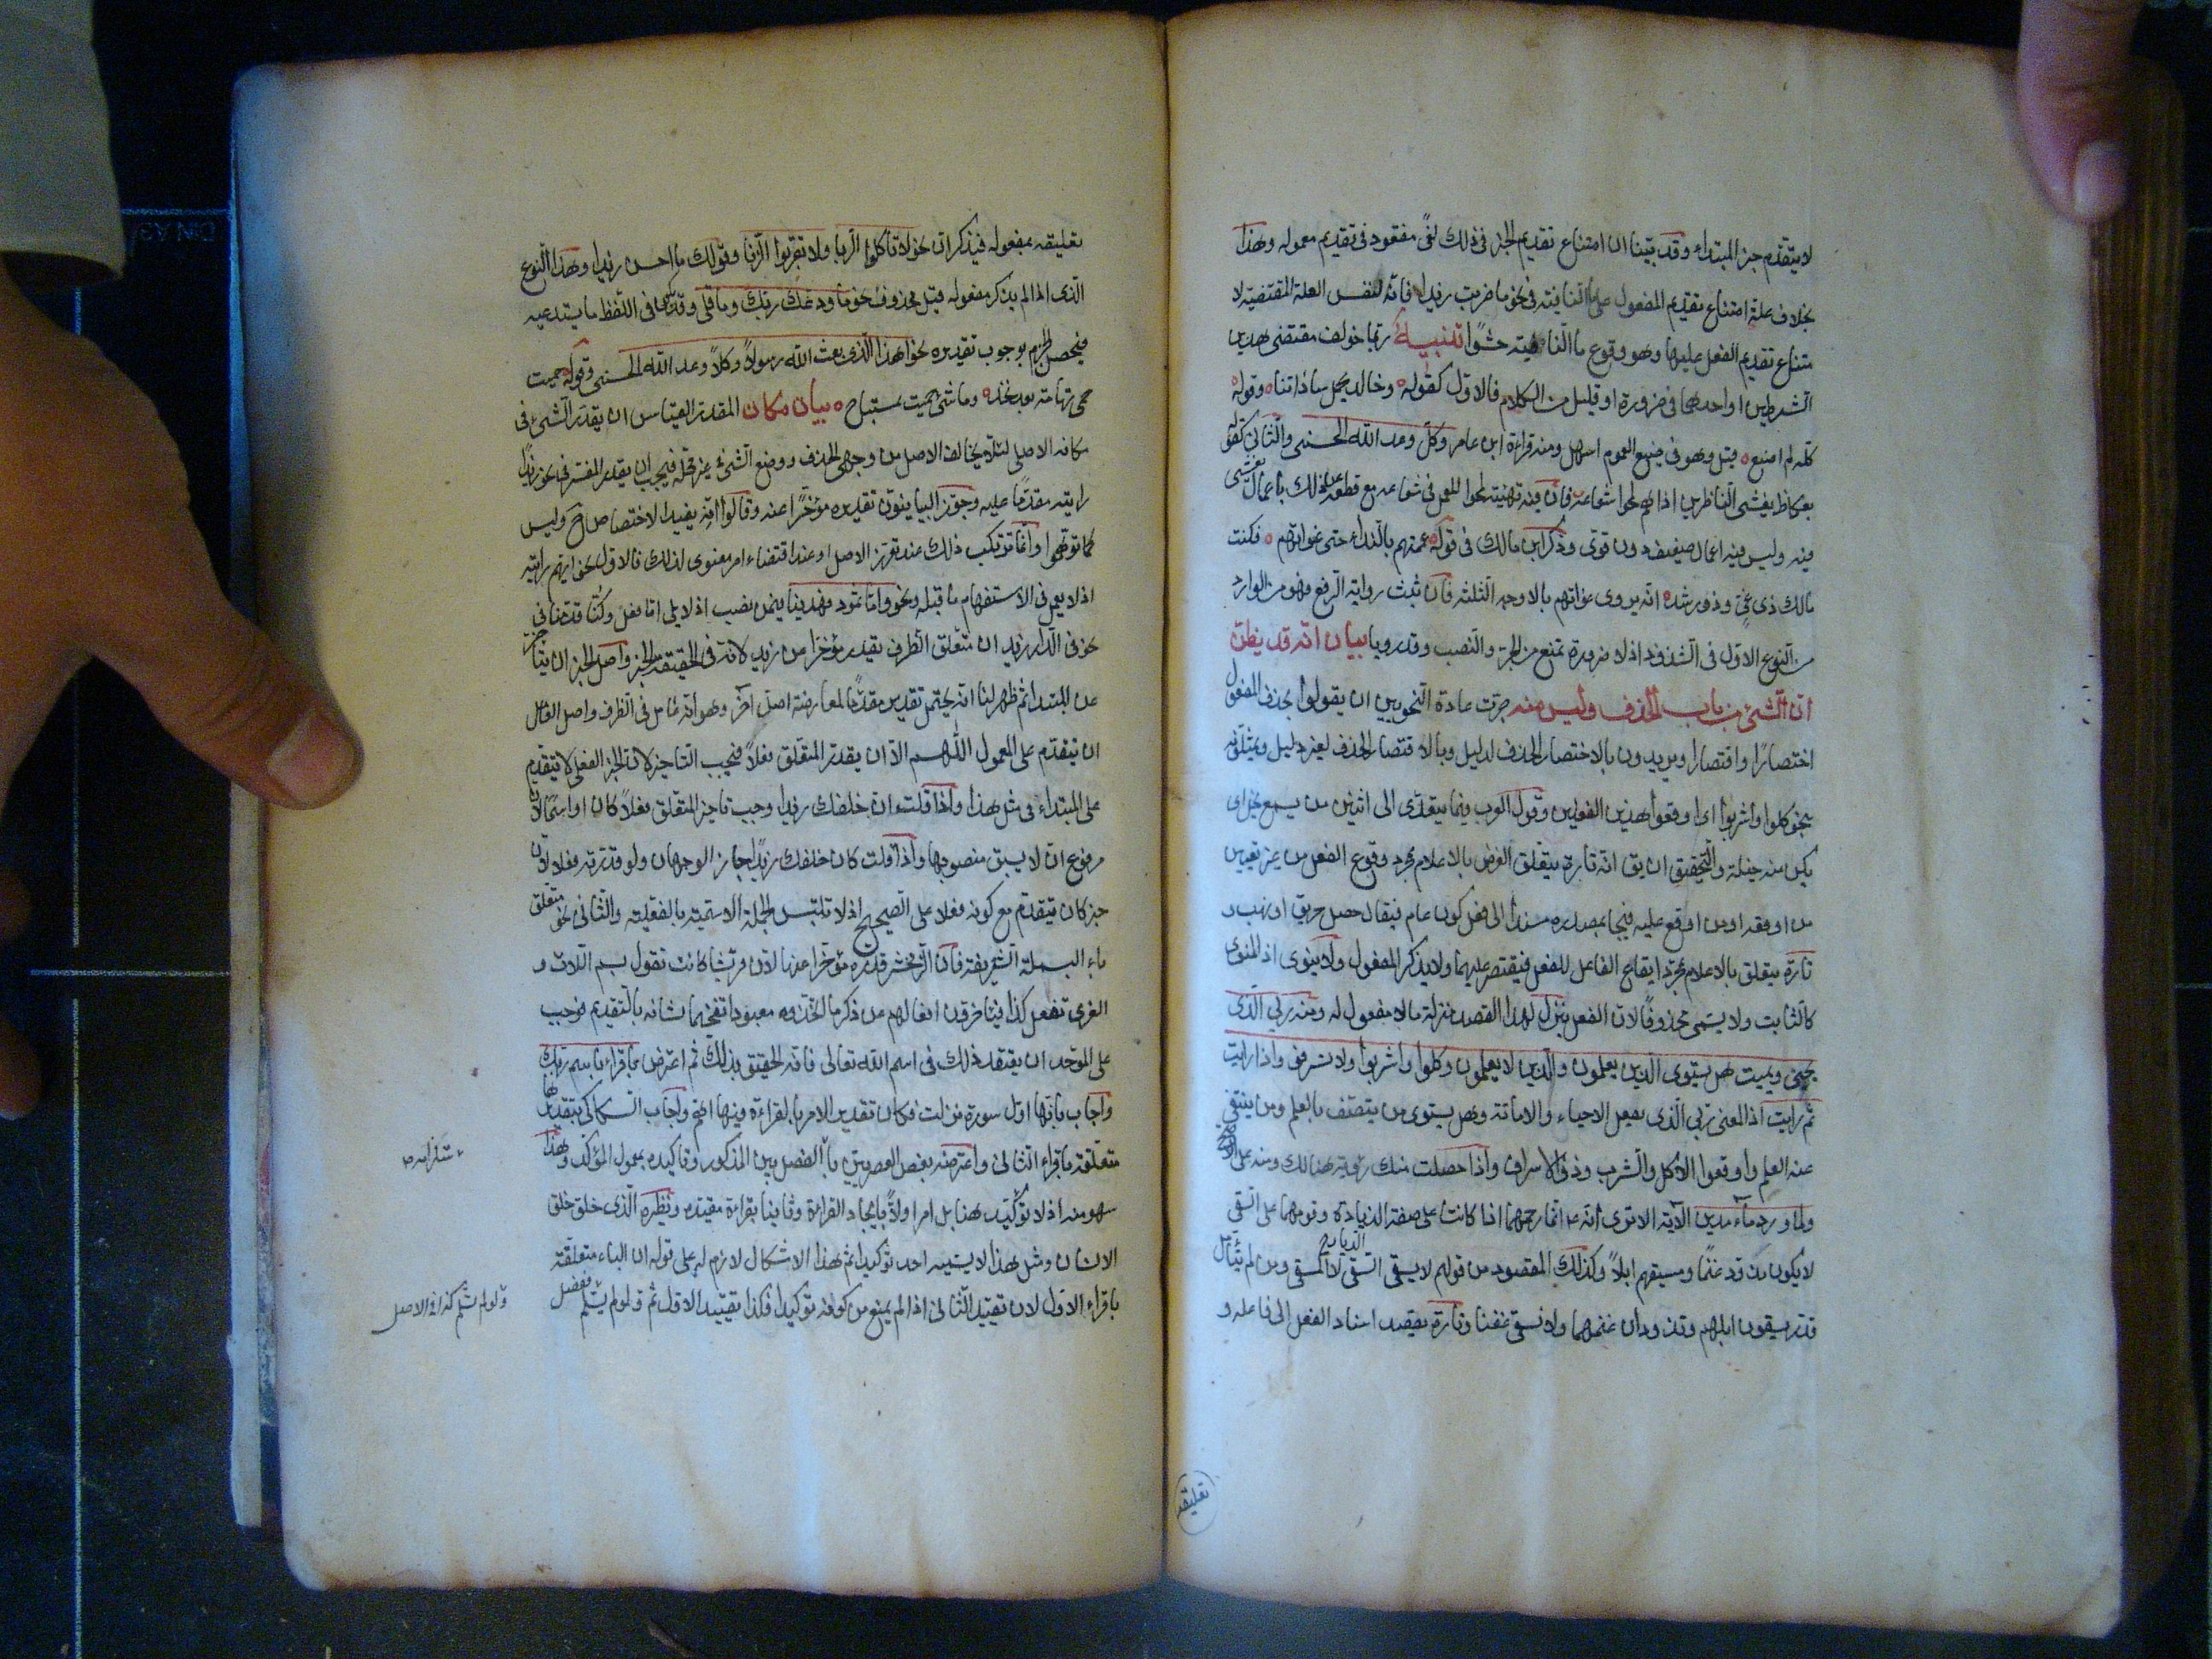 لا يتقدم خبر المبتداء وقد بيّنا ان امتناع تقديم الخبر فى ذلك لمعنى مفقود فى تقديم معموله وهذا
بخلاف علة امتناع تقديم المفعول على ما النافية فى نحو ما ضربت زيدا فانه لنفس العلة المقتضية لا
متناع تقديم الفعل عليها وهو وقوع ما النافية حشوًا تنبيه ربما خولف مقتضى هذين
الشرطين او احدهما فى ضرورة او قليل من الكلام فالاول كقوله وخالد يحمد ساداتنا وقوله
كله لم اصنع قيل وهو فى صيغ العموم اسهل ومنه قراءة ابن عامر وكل وعد الله الحسنى والثانى كقوله
بعكاظ يعشى الناظرين اذا هم لمحوا شعاعه فان فيه تهيئة لمحوا للعمل فى شعاعه مع قطعه عن ذلك باعمال يعشى
فيه وليس فيه اعمال ضعيف دون قوى وذكر ابن مالك فى قوله عممتهم بالنداء حتى غواتهم فكنت
مالك ذى غى وذى رشد انه يروى غواتهم بالاوجه الثلثه فان ثبت رواية الرفع فهو من الوارد
من النوع الاول فى الشذوذ اذ لا ضرورة تمنع من الجر والنصب وقد رويا بيان انه قد يظن
ان الشئ من باب الحذف وليس منه جرت عادة النحويين ان يقولوا بحذف المفعول
اختصارًا واقتصارا ويريدون بالاختصار الحذف لدليل وبالاقتصار الحذف لغير دليل ويمثلونه
بنحو كلوا واشربوا اى اوقعوا هذين الفعلين وقول العرب فيما يتعدى الى اثنين من يسمع يخل اى
يكن منه خيلة والتحقيق ان يق انه تارة يتعلق الغرض بالاعلام بمجرد وقوع الفعل من غير تعيين
من اوقعه او من اوقع عليه فيجاء بمصدره مسندا الى فعل كون عام فيقال حصل حريق او نهب و
تارة يتعلق بالاعلام بمجرد ايقاع الفاعل للفعل فيقتصر عليهما ولا يذكر المفعول ولا ينوى اذ المنوى
كالثابت ولا يسمى محذوفًا لان الفعل ينزل لهذا القصد منزلة ما لا مفعول له ومنه ربي الذى
يحيى ويميت هل يستوى الذين يعلمون والذين لا يعلمون وكلوا واشربوا ولا تسرفوا واذا رايت
ثم رايت اذ المعنى ربي الذى يفعل الاحياء والاماتة وهل يستوى من يتصف بالعلم ومن ينتفى
عنه العلم واوقعوا الاكل والشرب وذروا الاسراف واذا حصلت منك رؤية هنالك ومنه على الاصح
ولما ورد ماء مدين الآية الا ترى انه ع انما رحمهما اذا كانتا على صفة الذياد وقومهما على السقى
لا لكون مذودهما غنمًا ومسقيهم ابلاً وكذلك المقصود من قولهم لا نسقى السقى لا المسقى ومن لم يتأمل
قدر يسقون ابلهم وتذودان غنمهما ولا نسقى غنمنا وتارة يقصد اسناد الفعل الى فاعله و
تعليقه
تعليقه بمفعوله فيذكران نحو لا تاكلوا الربا ولا تقربوا الزنا وقولك ما احسن زيدا وهذا النوع
الذى اذا لم يذكر مفعوله قيل محذوف نحو ما ودعك ربك وما قلى وقد يكون فى اللفظ ما يستدعيه
فيحصل الجزم بوجوب تقديره نحو اهذا الذى بعث الله رسولاً وكلاً وعد الله الحسنى وقوله حميت
حمى تهامة بعد نجد وما شئ حميت بمستباح بيان مكان المقدر القياس ان يقدر الشئ فى
مكانه الاصلى لئلا يخالف الاصل من وجهى الحذف ووضع الشئ غير محله فيجب ان يقدر المفسر فى نحو زيدًا
رايته مقدمًا عليه وجوّز البيانيون تقديره مؤخرًا عنه وقالوا انه يفيد الاختصاص ح وليس
كما توهموا وانما يرتكب ذلك عند تعذر الاصل او عند اقتضاء امر معنوى لذلك فالاول نحو ايهم رايته
اذ لا يعمل فى الاستفهام ما قبله ونحو واما ثمود فهديناهم فيمن نصب اذ لا يلى اما فعل وكنا قدمنا فى
نحو فى الدار زيد ان متعلق الظرف يقدر مؤخرا من زيد لانه فى الحقيقة الخبر واصل الخبر ان يتاخر
عن المبتدا ثم ظهر لنا انه يحتمل تقديره مقدمًا لمعارضة اصل آخر وهو انه عامل فى الظرف واصل العامل
ان يتقدم على المعمول اللهم الا ان يقدر المتعلق فعلاً فيجب التاخير لان الخبر الفعلى لا يتقدم
على المبتداء فى مثل هذا واذا قلت ان خلفك زيدا وجب تاخير المتعلق فعلاً كان او اسمًا لان
مرفوع ان لا يسبق منصوبها واذا قلت كان خلفك زيد جاز الوجهان ولو قدرته فعلا لان
خبر كان يتقدم مع كونه فعلا على الصحيح اذ لا تلتبس الجملة الاسمية بالفعلية والثانى نحو متعلق
باء البسملة الشريفة فان الزمخشرى قدره مؤخرا عنها لان قريشا كانت تقول بسم اللات و
العزى نفعل كذا فيؤخرون افعالهم عن ذكر ما اتخذوه معبودا تفخيما لشانه بالتقديم فوجب
على الموحد ان يعتقد ذلك فى اسم الله تعالى فانه الحقيق بذلك ثم اعترض باقراء باسم ربك
واجاب بانها اول سورة نزلت فكان تقديم الامر بالقراءة فيها اهم واجاب السكاكى بتقديرها
متعلقة باقراء الثانى واعترضه بعض العصريين باستلزامه الفصل بين المذكور وتاكيده بمعمول المؤكد وهذا
سهو منه اذ لا توكيد هنا بل امر اولاً بايجاد القراءة وثانيا بقراءة مقيدة ونظيره الذى خلق خلق
الانسان ومثل هذا لا يسميه احد توكيدا ثم هذا الاشكال لازم له على قوله ان الباء متعلقة
باقراء الاول لان تقييد الثانى اذا لم يمنع من كونه توكيدا فكذا تقييد الاول ثم لو لم يسلم ففصل
ستلزامه
ولو لم يسلم كذا فى الاصل